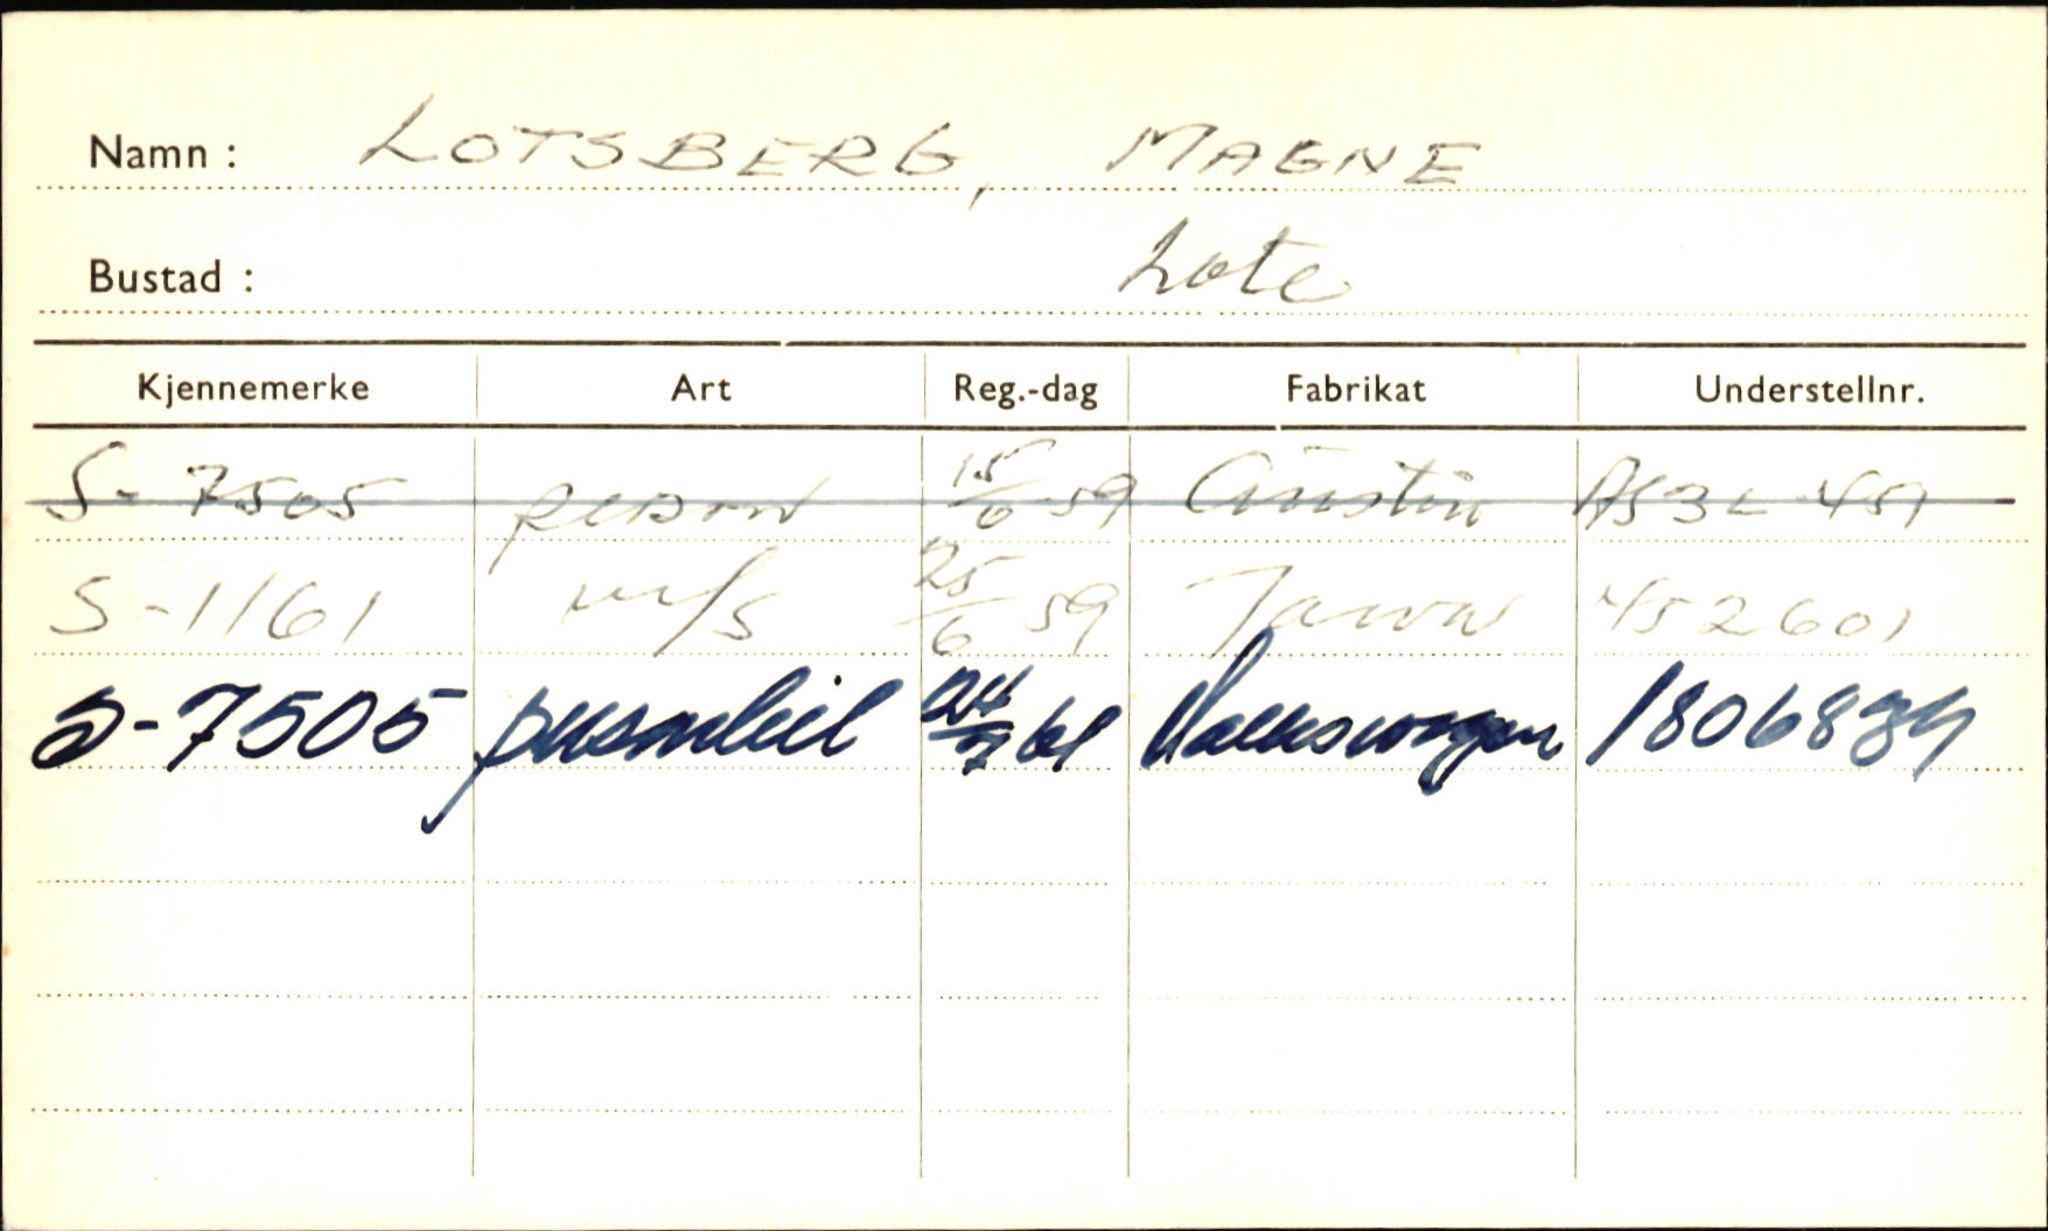 Namn: LOTSBERG, MAGNE
Bustad: Lote
Kjennemerke Art Reg.-dag Fabrikat Understellnr.
S-7505 person 15/6 59 Austin AS3L 451
S-1161 m/s 25/6 59 Jawa 452601
S-7505 personbil 24/7 61 Volkswagen 1806834